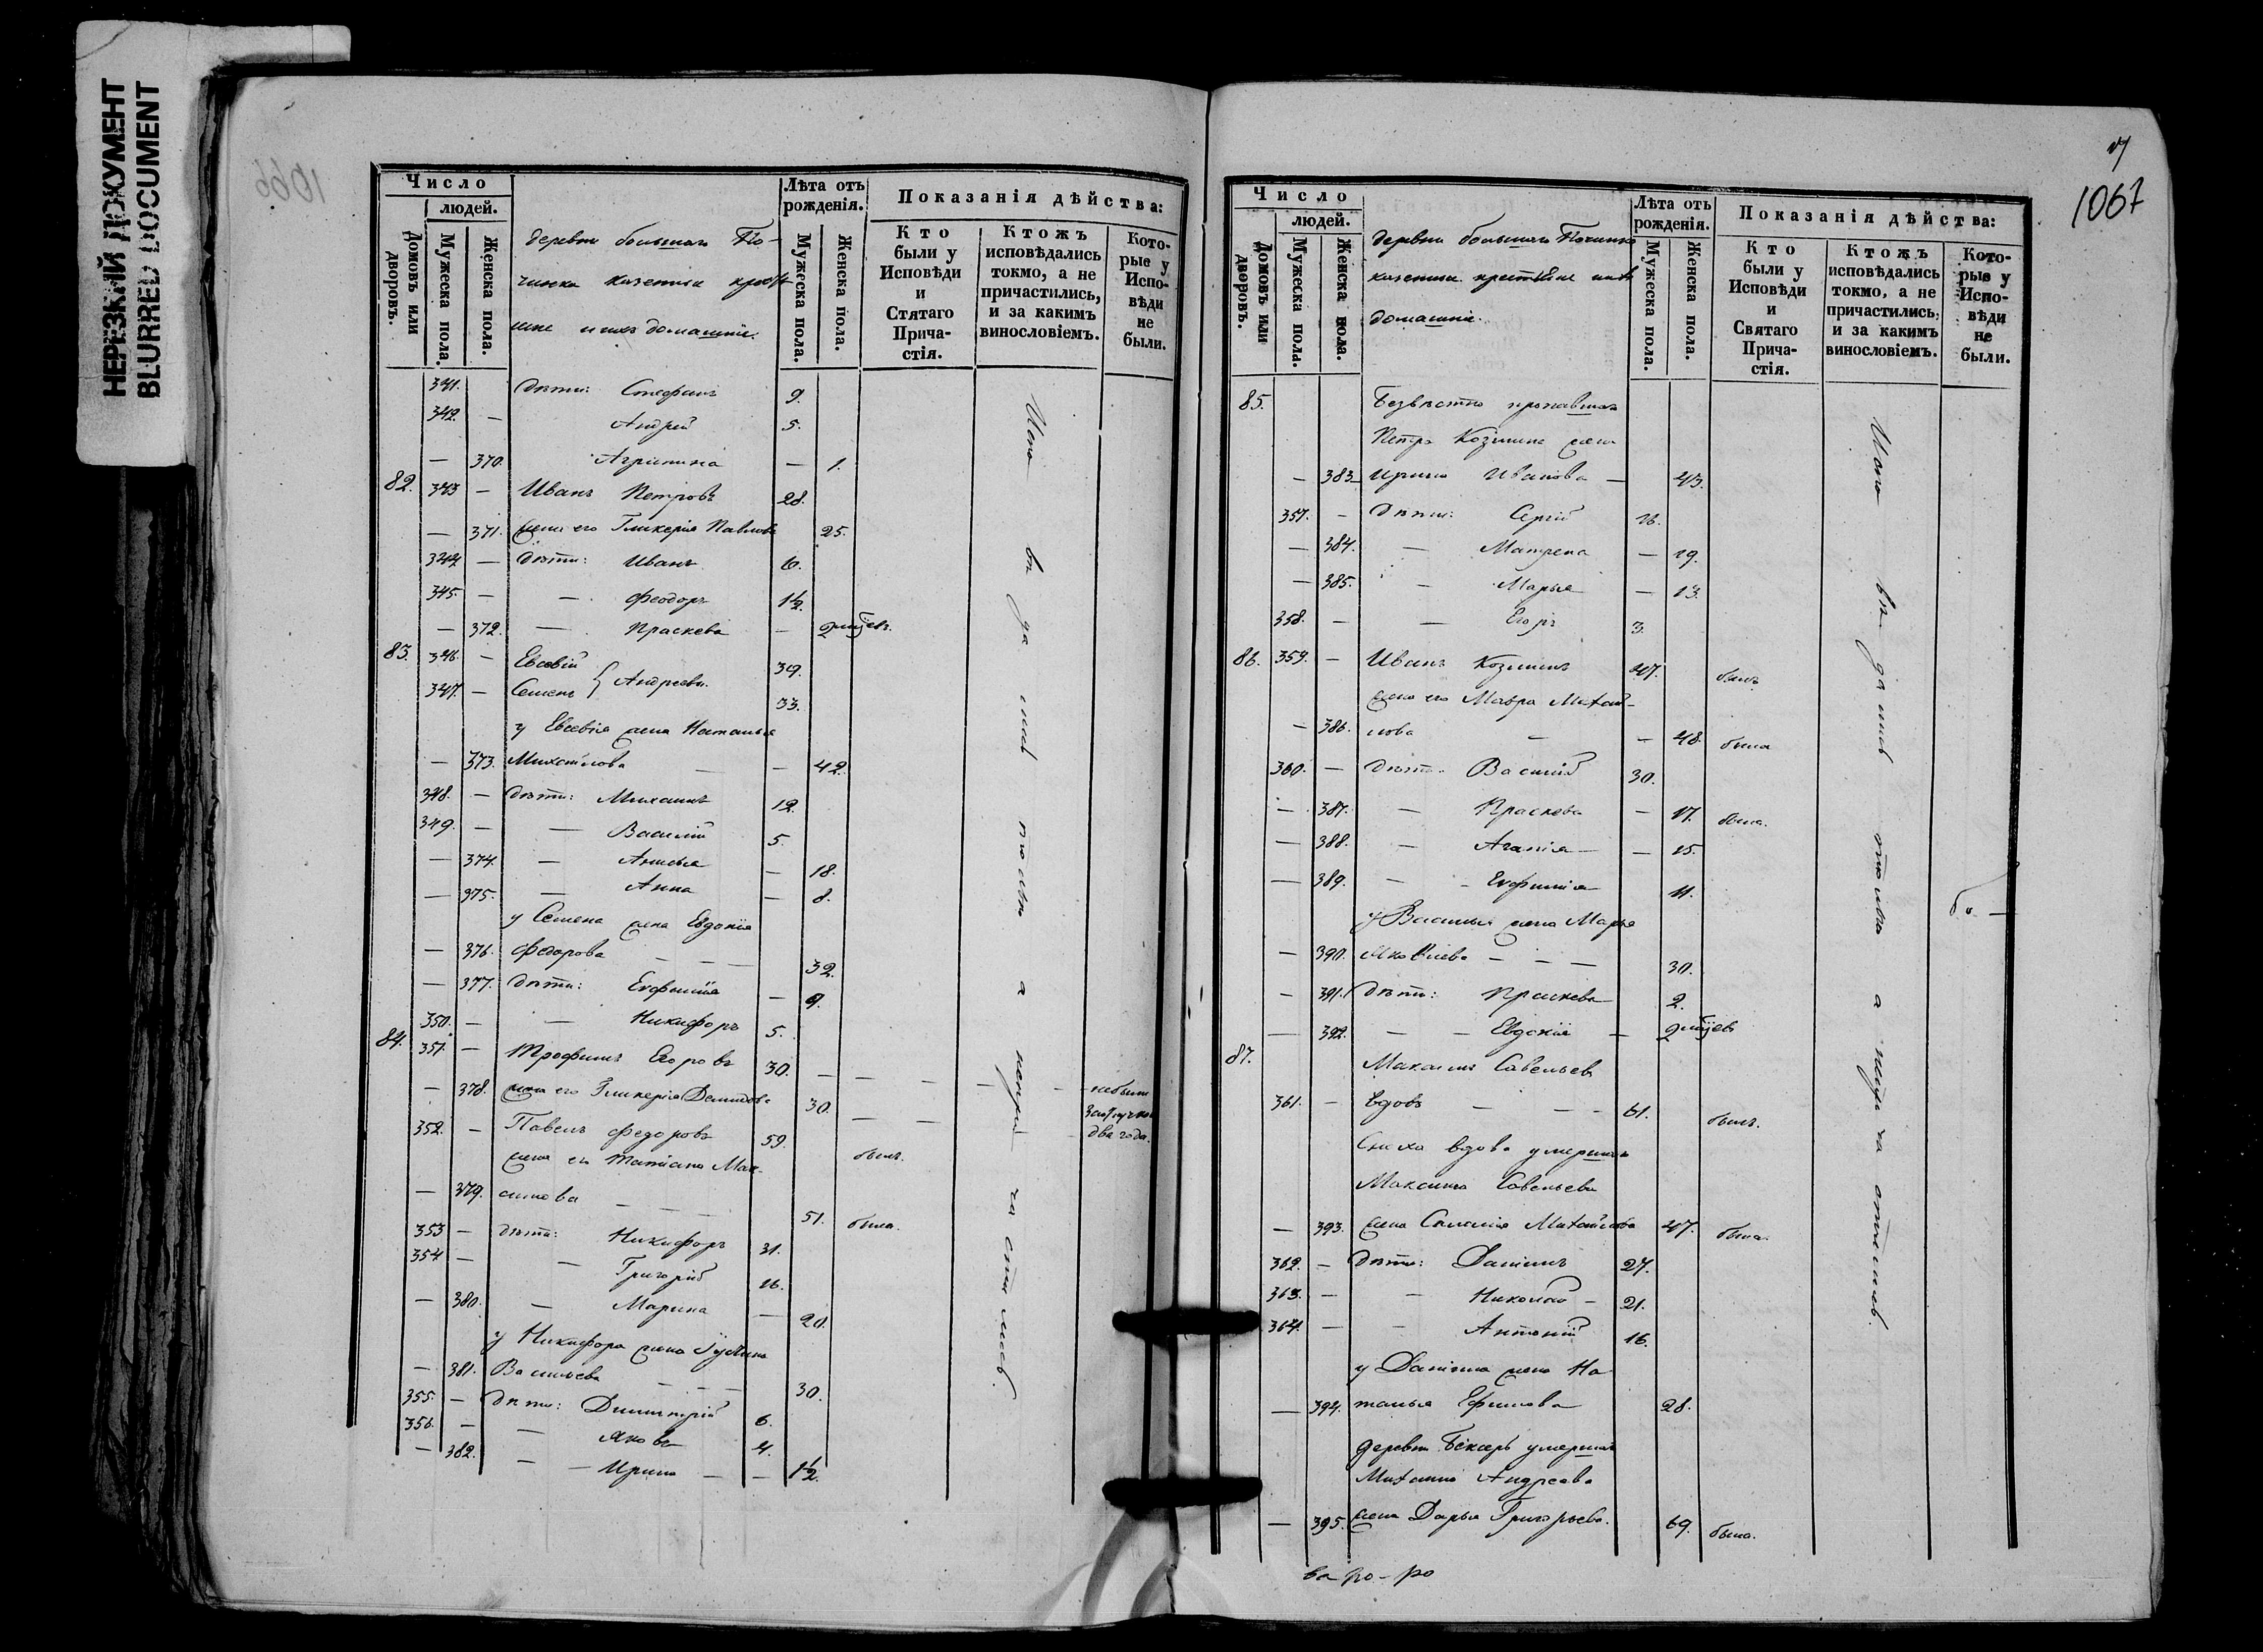 НЕРЕЗКИЙ ДОКУМЕНТ
BLURRED DOCUMENT
1066
Число
людей.
Домовъ или дворовъ.
Мужеска пола.
Женска пола.
деревни большаго По-
чинка казенные кресть
яне и ихъ домашніе.
Лѣта отъ рожденія.
Мужеска пола.
Женска пола.
Показанія дѣйства:
Кто были у Исповѣди и Стятаго Причастія.
Ктожъ исповѣдались токмо, а не причастились, и за какимъ винословіемъ.
Которые у Исповѣди не были.
341. дѣти: Стефанъ 9.
342. — Андрей 5.
— 370. Агрипина — 1.
82. 343 — Иванъ Петровъ 28.
— 371. жена его Гликерія Павлова 25.
344 — дѣти: Иванъ 6.
345. — — Феодоръ 1½.
— 372. — Праскева — 2 мѣсяц.
83. 346. — Евсевій 39.
347. — Семенъ } Андреевы. 33.
у Евсевія жена Наталья
— 373. Михайлова — — 42.
348. — дѣти: Михаилъ 12.
349. — — Василій 5.
— 374. — Анисья — 18.
— 375. — Анна — 8.
у Семена жена Евдокія
— 376. Федорова — — — 32.
— 377. дѣти: Евфимія — 9.
350. — — Никифоръ 5.
84. 351. — Трофимъ Егоровъ 30. — — — — — небыли
— 378. жена его Гликерія Демидова 30. — — —
352. — Павелъ Федоровъ 59. былъ. два года.
жена его Татіана Мак-
— 379. симова — — — 51. была.
353 — дѣти: Никифоръ 31.
354 — — Григорій 16.
— 380. — Марина — 20.
у Никифора жена Іустина
— 381. Васильева — — — 30.
355. — дѣти: Димитрій 6.
356. — — Яковъ 4.
— 382. — — Ирина — — 1½.
1067
Число
людей.
Домовъ или дворовъ.
Мужеска пола.
Женска пола.
деревни большаго Починка
казенные крестьяне ихъ
домашніе.
Лѣта отъ рожденія.
Мужеска пола.
Женска пола.
Показанія дѣйства:
Кто были у Исповѣди и Святаго Причастія.
Ктожъ исповѣдались токмо, а не причастились, и за какимъ винословіемъ.
Которые у Исповѣди не были.
85. Безвѣстно пропавшаго
Петра Козмина жена
— 383. Ирина Иванова — 43.
357. — дѣти: Сергій 16.
— 384. — Матрена — 19.
— 385. — Марья — 13.
358. — — Егоръ 3.
86. 359. — Иванъ Козминъ 47. былъ.
жена его Мавра Михай-
— 386. лова — — 48. была
360. — дѣти: Василій 30.
— 387. — Праскева — 17. была.
— 388. — Агапія — — 15.
— 389. — Евфимія 11.
у Василья жена Марья
— 390. Яковлева — — — 30.
— 391. дѣти: Праскева 2.
— 392. — — Евдокія — 2 мѣсяц.
87. Максимъ Савельевъ
361. — вдовъ — — — 61. былъ.
Сноха вдова умершаго
Максима Савельева
— 393. жена Саломія Михайлова 47. была.
362. — дѣти: Даніилъ 27.
363. — — Николай — 21.
364. — — Антоній 16.
у Даніила жена На
— 394. талья Ефимова 28.
деревни умершаго
Михаила Андреева
— 395. жена Дарья Григорьева. 69. была.